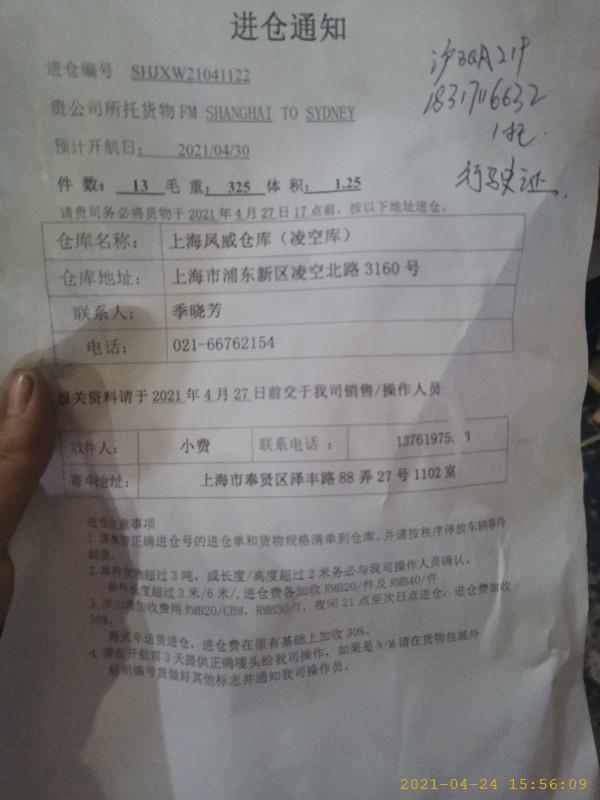 进仓通知
进仓编号 SHJXW21041122
贵公司所托货物FM SHANGHAI TO SYDNEY
预计开航日: 2021/04/30
件 数: 13 毛 重: 325 体 积: 1.25
请贵司务必将货物于 2021 年 4 月 27 日 17 点前, 按以下地址进仓。
仓库名称: 上海凤威仓库（凌空库）
仓库地址: 上海市浦东新区凌空北路 3160 号
联系人: 季晓芳
电话: 021-66762154
报关资料请于 2021 年 4 月 27 日前交于我司销售/操作人员
收件人: 小费 联系电话 : 13761975
寄单地址: 上海市奉贤区泽丰路 88 弄 27 号 1102 室
进仓注意事项
1. 请 正确进仓号的进仓单和货物规格清单到仓库。并请按秩序停放车辆等待
卸货。
2. 单件货物超过 3 吨, 或长度/高度超过 2 米务必与我司操作人员确认。
单件长度超过 3 米/6 米/,进仓费各加收 RMB20/件及 RMB40/件
3. 洋山港加收费用 RMB20/CBM, RMB30/T, 夜间 21 点至次日点进仓, 进仓费加收
50%。
车送货进仓, 进仓费在原有基础上加收 30%。
4. 请在开航前 3 天提供正确唛头给我司操作, 如果是 N/M 请在货物包装外
标明编号货做好其他标志并通知我司操作员。
18317116632
1托
行驶证
2021-04-24 15:56:09